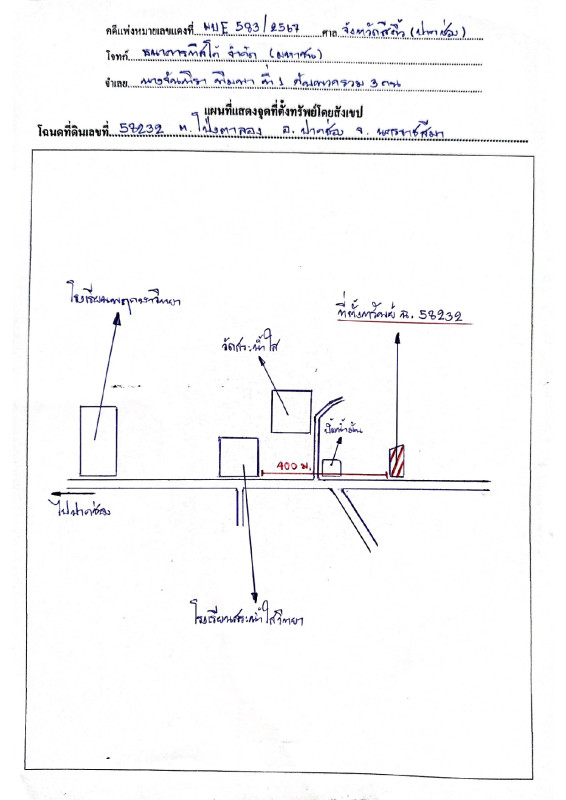 คดีแพ่งหมายเลขแดงที่ ผบE 583/2567 ศาล จังหวัดสีคิ้ว (ปากช่อง)
โจทก์ ธนาคารทิสโก้ จำกัด (มหาชน)
จำเลย ที่ 1 กับพวกรวม 3 คน
แผนที่แสดงจุดที่ตั้งทรัพย์โดยสังเขป
โฉนดที่ดินเลขที่ 58232 ต. โป่งตาลอง อ. ปากช่อง จ. นครราชสีมา
ที่ตั้งทรัพย์ ฉ. 58232
วัดสระน้ำใส
ปั๊มน้ำมัน
400 ม.
ไปปากช่อง
โรงเรียนสระน้ำใสวิทยา